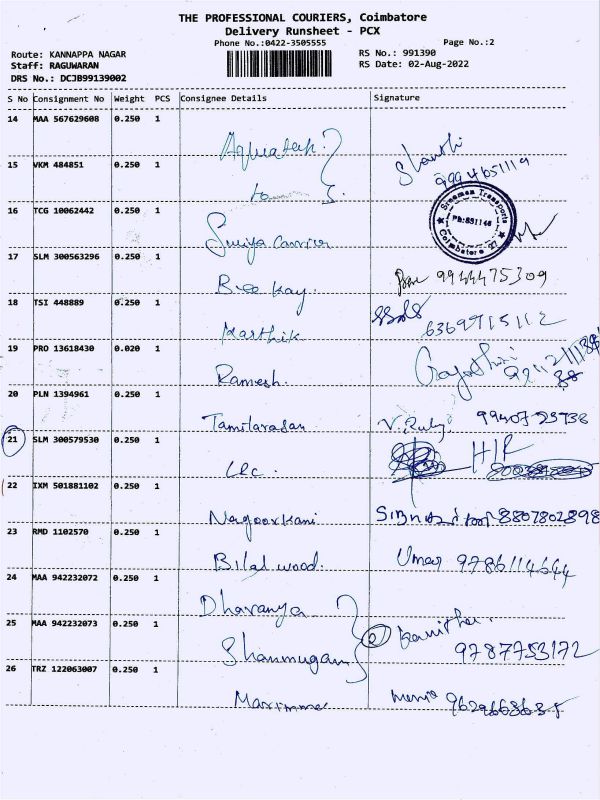 THE PROFESSIONAL COURIERS, Coimbatore
Delivery Runsheet - PCX
Phone No.:0422-3505555 Page No.:2
Route: KANNAPPA NAGAR RS No.: 991390
Staff: RAGUWARAN RS Date: 02-Aug-2022
DRS No.: DCJB99139002
S No Consignment No Weight PCS Consignee Details Signature
14 MAA 567629608 0.250 1
Aquatech
15 VKM 484851 0.250 1
16 TCG 10062442 0.250 1
Sreeman Transports
Ph:531146
Coimbatore 27
Suriya Carrier
17 SLM 300563296 0.250 1
Bee Kay. 9944475309
18 TSI 448889 0.250 1
Karthik 6369715112
19 PRO 13618430 0.020 1
Ramesh.
20 PLN 1394961 0.250 1
Tamilarasan V. Ruby
21 SLM 300579530 0.250 1
LRC.
22 IXM 501881102 0.250 1
Nagoorkani 8807802898
23 RMD 1102570 0.250 1
Bilal wood. Umar 9786114644
24 MAA 942232072 0.250 1
Dharanya
25 MAA 942232073 0.250 1
Shanmugam 9787753172
26 TRZ 122063007 0.250 1